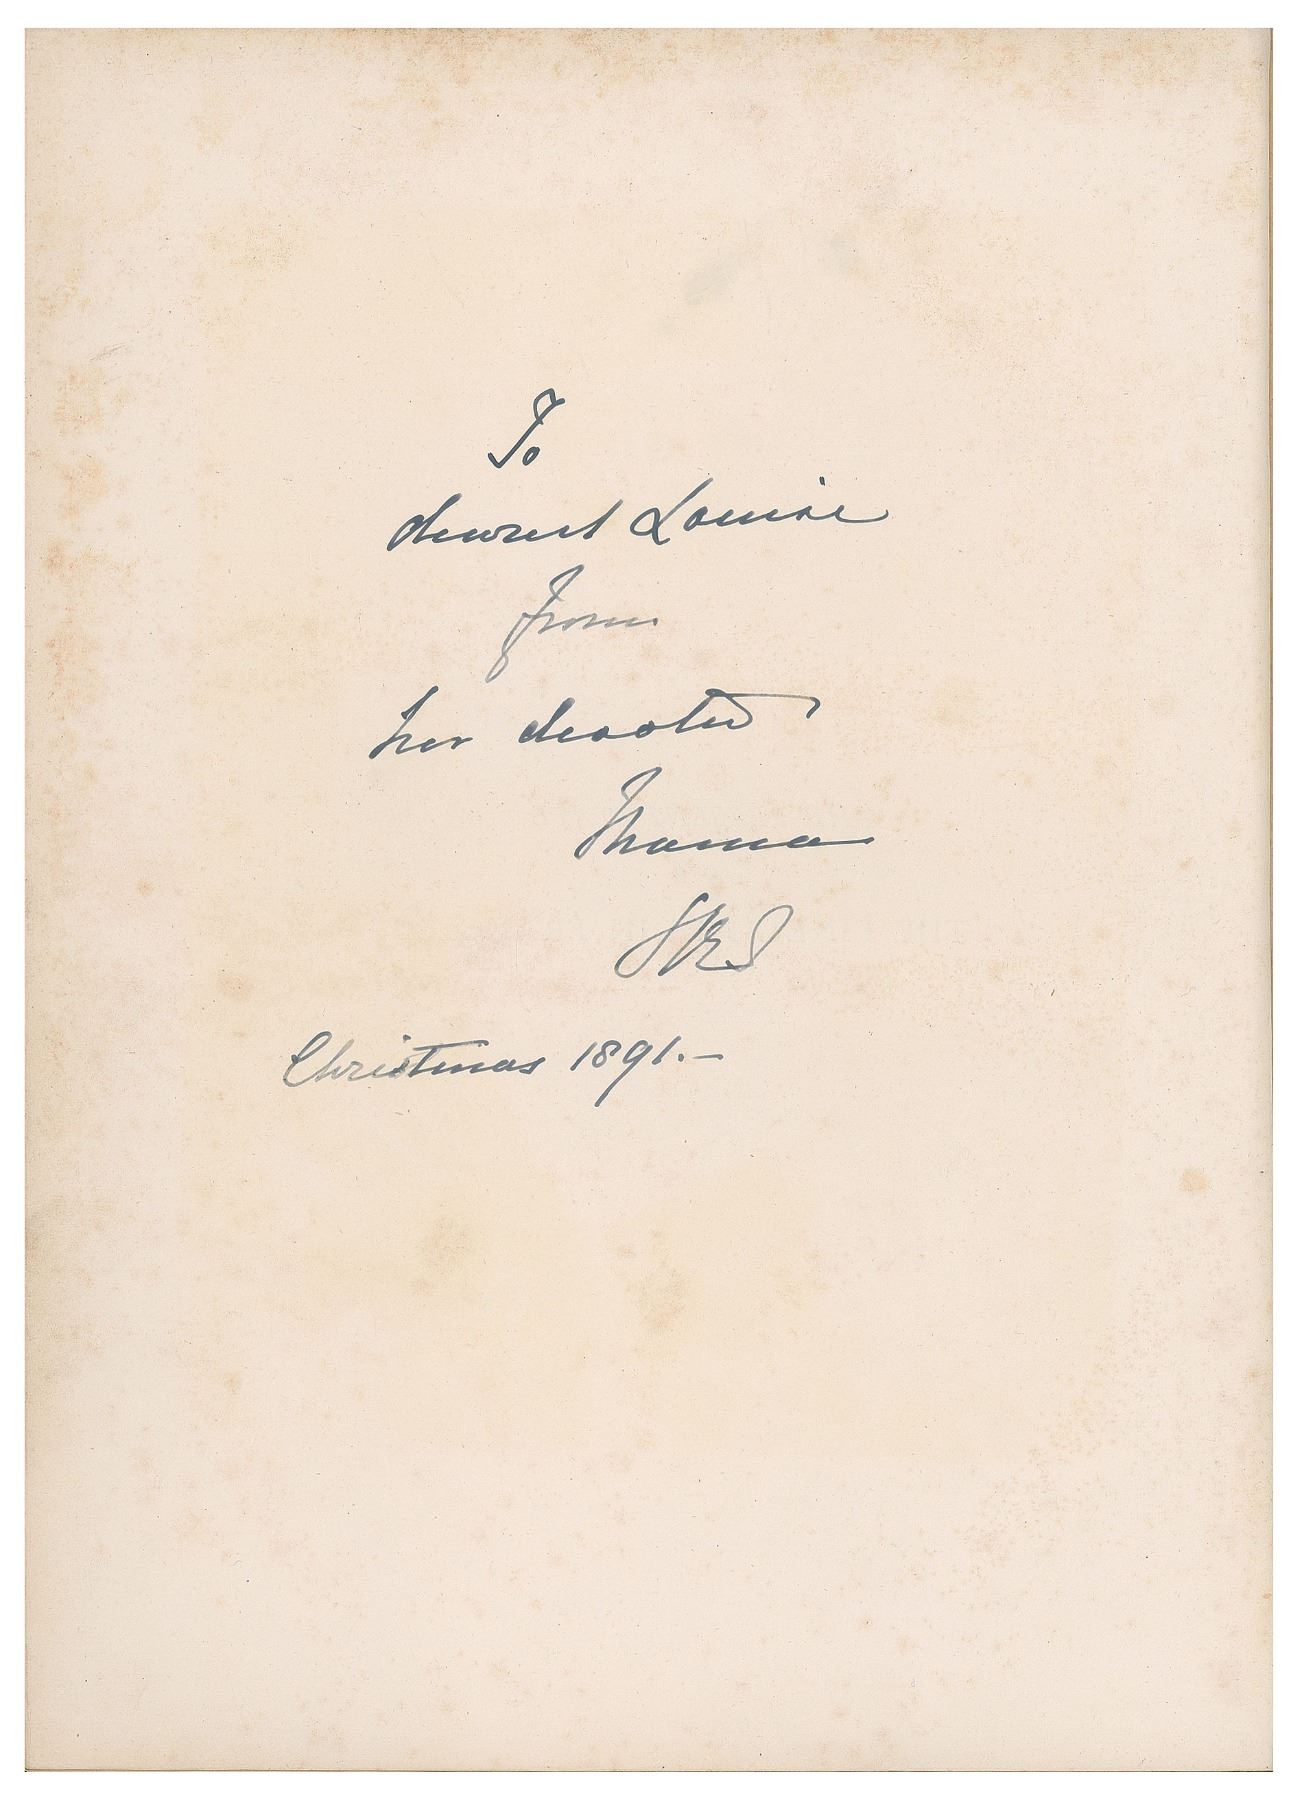 To
dearest Louise
from
her devoted
Mama
Christmas 1891.–